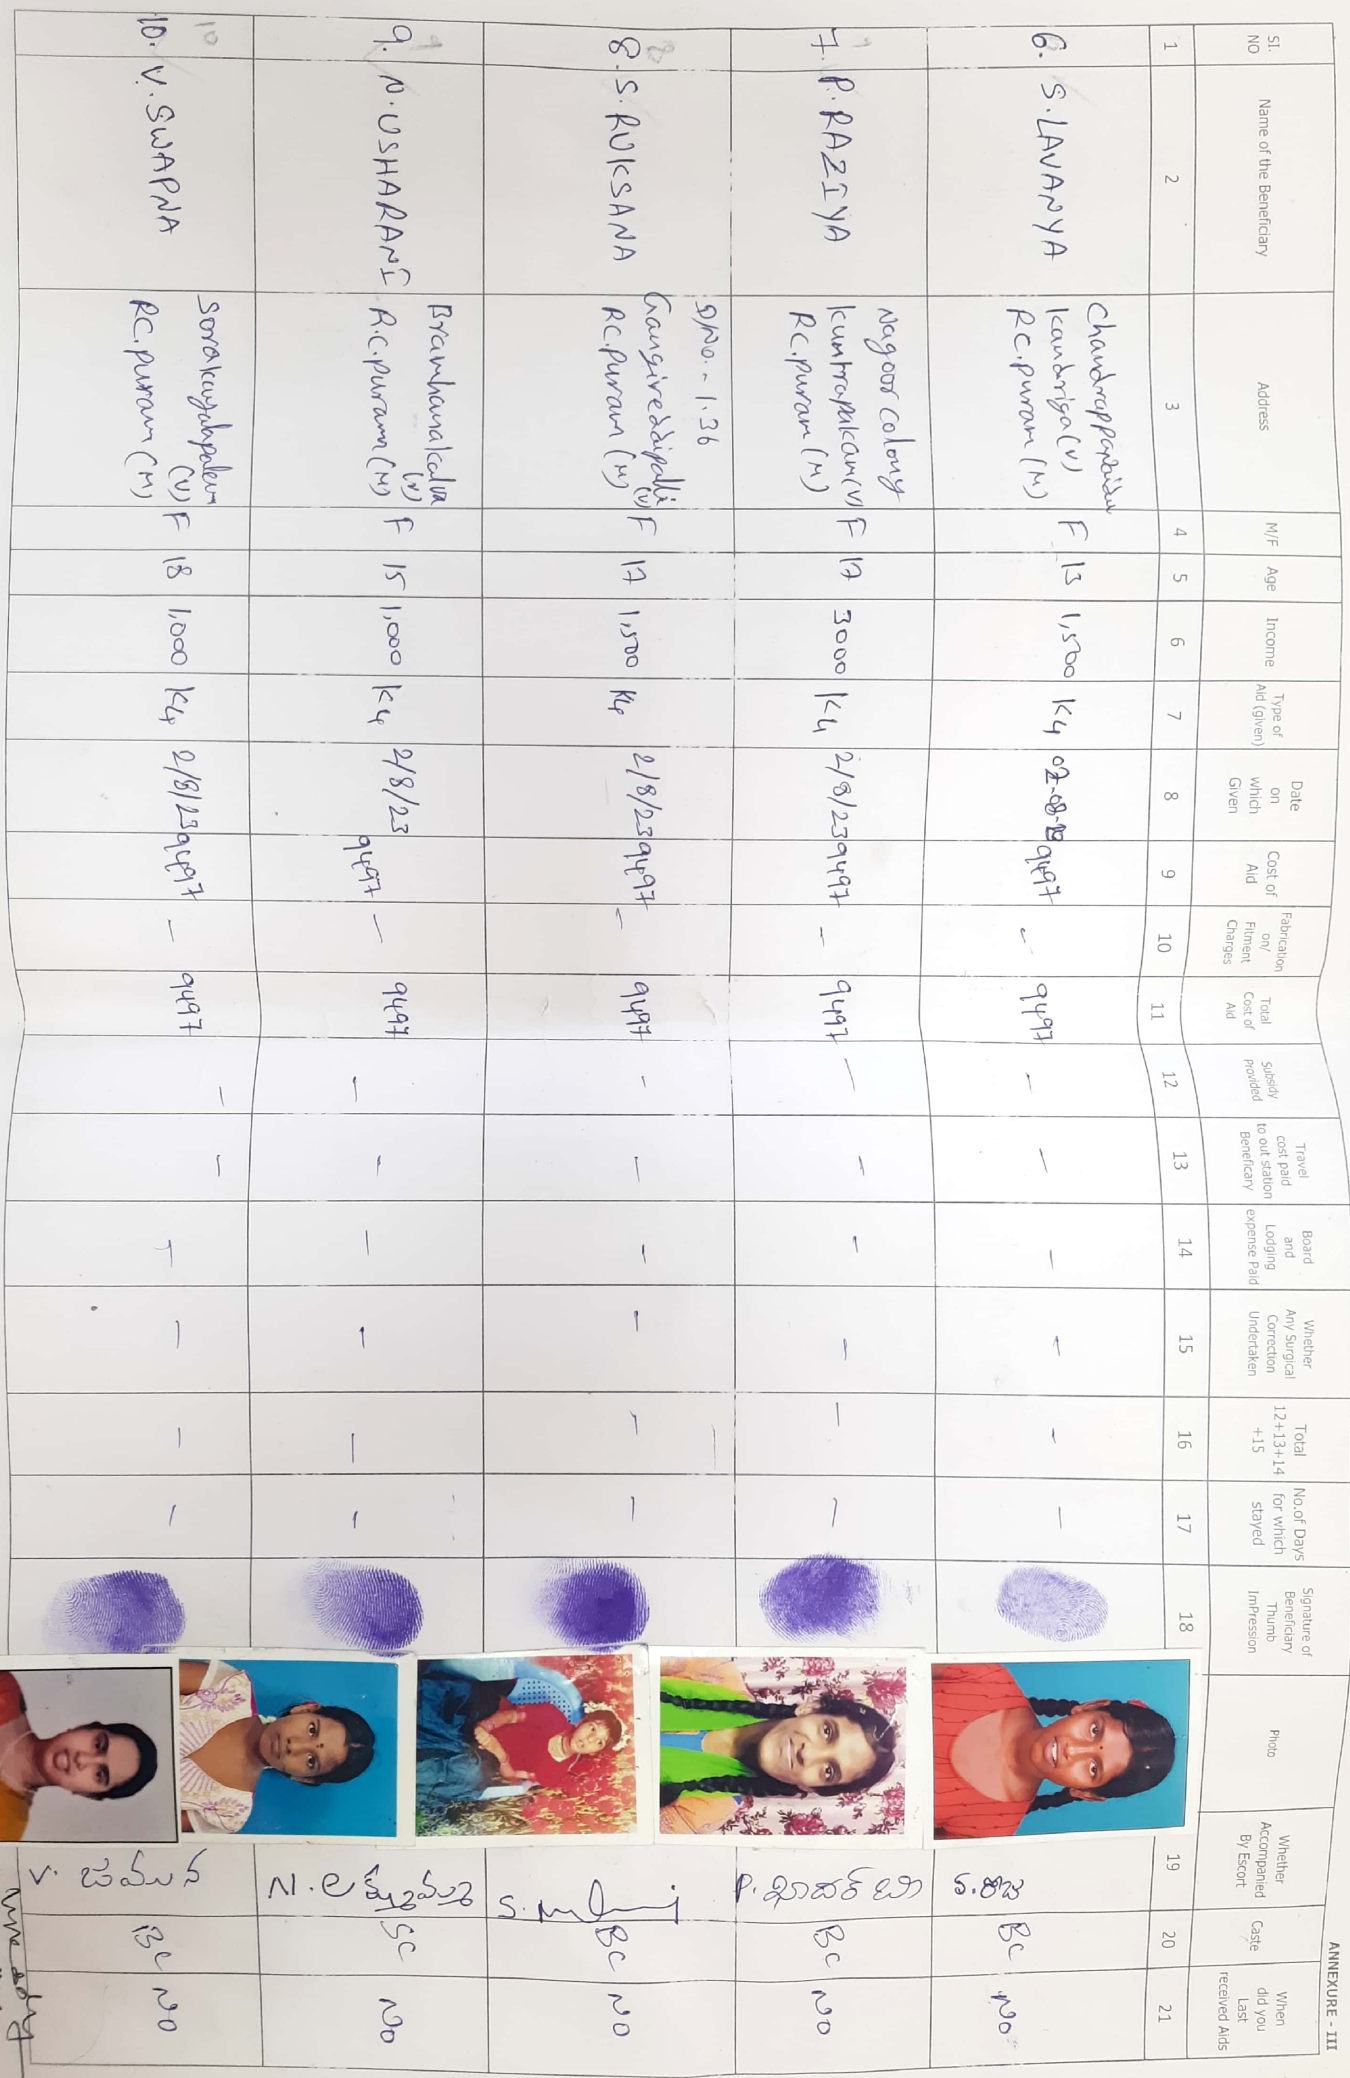 ANNEXURE - III
Sl. NO
Name of the Beneficiary
Address
M/F
Age
Income
Type of Aid (given)
Date on which Given
Cost of Aid
Fabrication on/ Fitment Charges
Total Cost of Aid
Subsidy Provided
Travel cost paid to out station Beneficary
Board and Lodging expense Paid
Whether Any Surgical Correction Undertaken
Total 12+13+14 +15
No.of Days for which stayed
Signature of Beneficiary Thumb ImPression
Photo
Whether Accompanied By Escort
Caste
When did you Last received Aids
1 2 3 4 5 6 7 8 9 10 11 12 13 14 15 16 17 18 19 20 21
6. S.LAVANYA
kandriga (V)
RC.puram (M)
F 13 1,500 K4 9497 - 9497 - - - - - - S.రాజ BC No
7. P.RAZIYA
Nagoor colony
kuntrapakam (V)
RC.puram (M)
F 17 3000 K4 2/8/23 9497 - 9497 - - - - - - P. ఖాదర్ బీ BC No
8. S. RUKSANA
D/No. - 1.36
Gangireddipalli (V)
RC.puram (M)
F 17 1,500 K4 2/8/23 9497 - 9497 - - - - - - S. BC NO
9. N.USHARANI
Bramhanakalva (V)
R.C.puram (M)
F 15 1,000 K4 2/8/23 9497 - 9497 - - - - - - N. లక్ష్మమ్మ SC No
10. V. SWAPNA
Sorakayalapalem (V)
RC.puram (M)
F 18 1,000 K4 2/8/23 9497 - 9497 - - - - - - V. జమున BC No